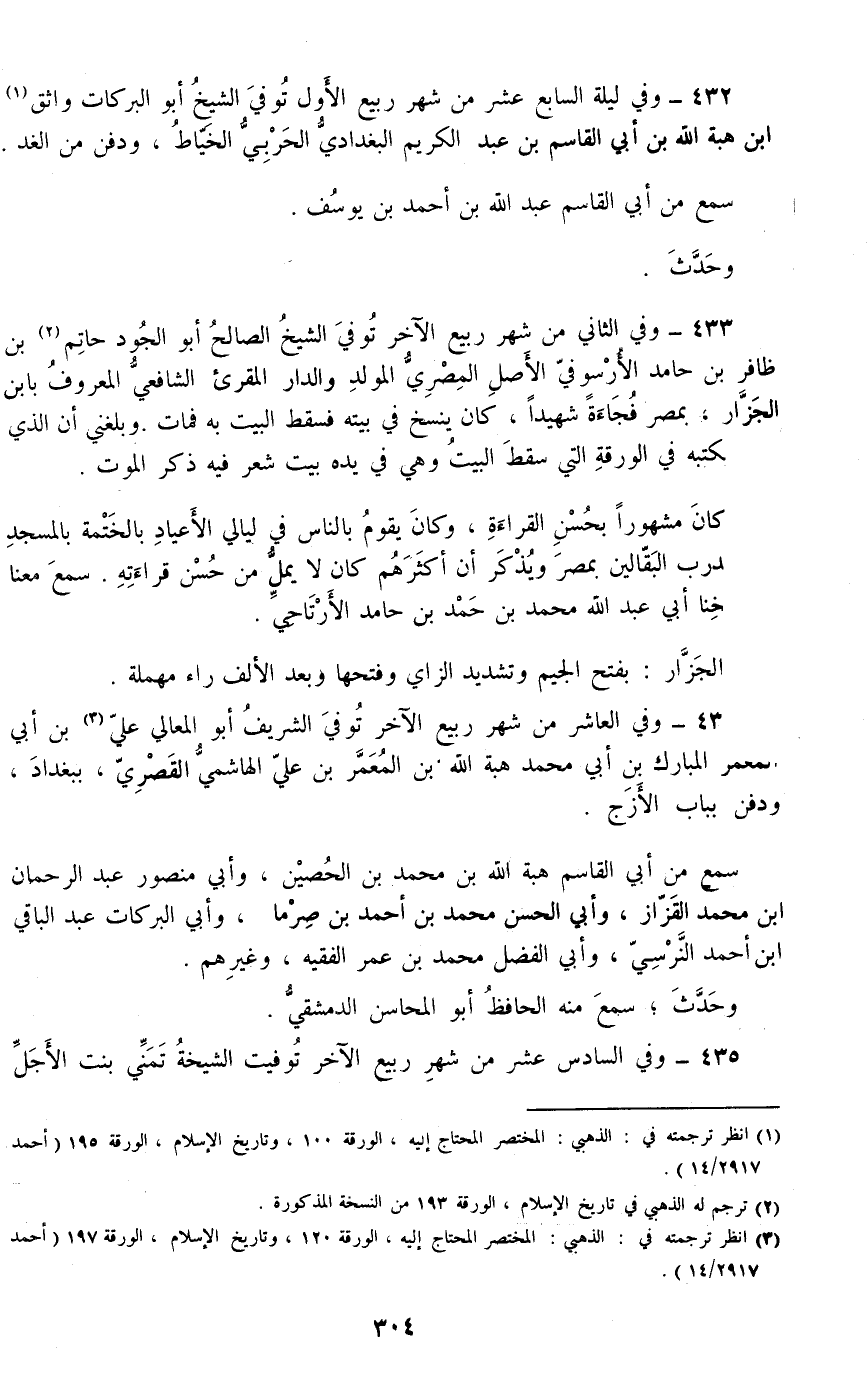 ٤٣٢ ــ وفي ليلة السابع عشر من شهر ربيع الأَول تُوفيَ الشيخُ أبو البركات واثق (١)
ابن هبة الله بن أبي القاسم بن عبد الكريم البغداديُّ الحَرْبيُّ الخَيّاطُ ، ودفن من الغد .
سمع من أبي القاسم عبد الله بن أحمد بن يوسُف .
وحَدَّثَ .
٤٣٣ ــ وفي الثاني من شهر ربيع الآخر تُوفيَ الشيخُ الصالحُ أبو الجُود حاتِم (٢) بن
ظافر بن حامد الأُرْسوفيّ الأَصلِ المِصْرِيُّ المولدِ والدار المقرئ الشافعيُّ المعروفُ بابن
الجَزَّار ، بمصر فُجَاءَةً شهيداً ، كان ينسخ في بيته فسقط البيت به فمات . وبلغني أن الذي
كتبه في الورقةِ التي سقطَ البيتُ وهي في يده بيت شعر فيه ذكر الموت .
كانَ مشهوراً بحُسْنِ القراءَةِ ، وكانَ يقومُ بالناس في ليالي الأَعيادِ بالخَتْمة بالمسجدِ
بدرب البَقّالين بمصرَ ويُذْكَر أن أكثَرَهُم كان لا يملُّ من حُسْن قراءَتِهِ . سمعَ معنا
أبي عبد الله محمد بن حَمْد بن حامد الأَرْتَاحِيِّ .
الجَزَّار : بفتح الجيم وتشديد الزاي وفتحها وبعد الألف راء مهملة .
٤٣ ــ وفي العاشر من شهر ربيع الآخر تُوفيَ الشريفُ أبو المعالي عليّ (٣) بن أبي
المبارك بن أبي محمد هبة الله بن المُعَمَّر بن عليّ الهاشميُّ القَصْرِيّ ، ببغدادَ ،
ودفن بباب الأَزَج .
سمع من أبي القاسم هبة الله بن محمد بن الحُصيْن ، وأبي منصور عبد الرحمان
ابن محمد القَزّاز ، وأبي الحسن محمد بن أحمد بن صِرْما ، وأبي البركات عبد الباقي
ابن أحمد النَّرْسِيّ ، وأبي الفضل محمد بن عمر الفقيه ، وغيرِهم .
وحَدَّثَ ؛ سمعَ منه الحافظُ أبو المحاسن الدمشقيُّ .
٤٣٥ ــ وفي السادس عشر من شهرِ ربيع الآخر تُوفيت الشيخةُ تَمَنِّي بنت الأَجَلِّ
(١) انظر ترجمته في : الذهبي : المختصر المحتاج إليه ، الورقة ١٠٠ ، وتاريخ الإسلام ، الورقة ١٩٥ ( أحمد
١٤/٢٩١٧ ) .
(٢) ترجم له الذهبي في تاريخ الإسلام ، الورقة ١٩٣ من النسخة المذكورة .
(٣) انظر ترجمته في : الذهبي : المختصر المحتاج إليه ، الورقة ١٢٠ ، وتاريخ الإسلام ، الورقة ١٩٧ ( أحمد
١٤/٢٩١٧ ) .
٣٠٤